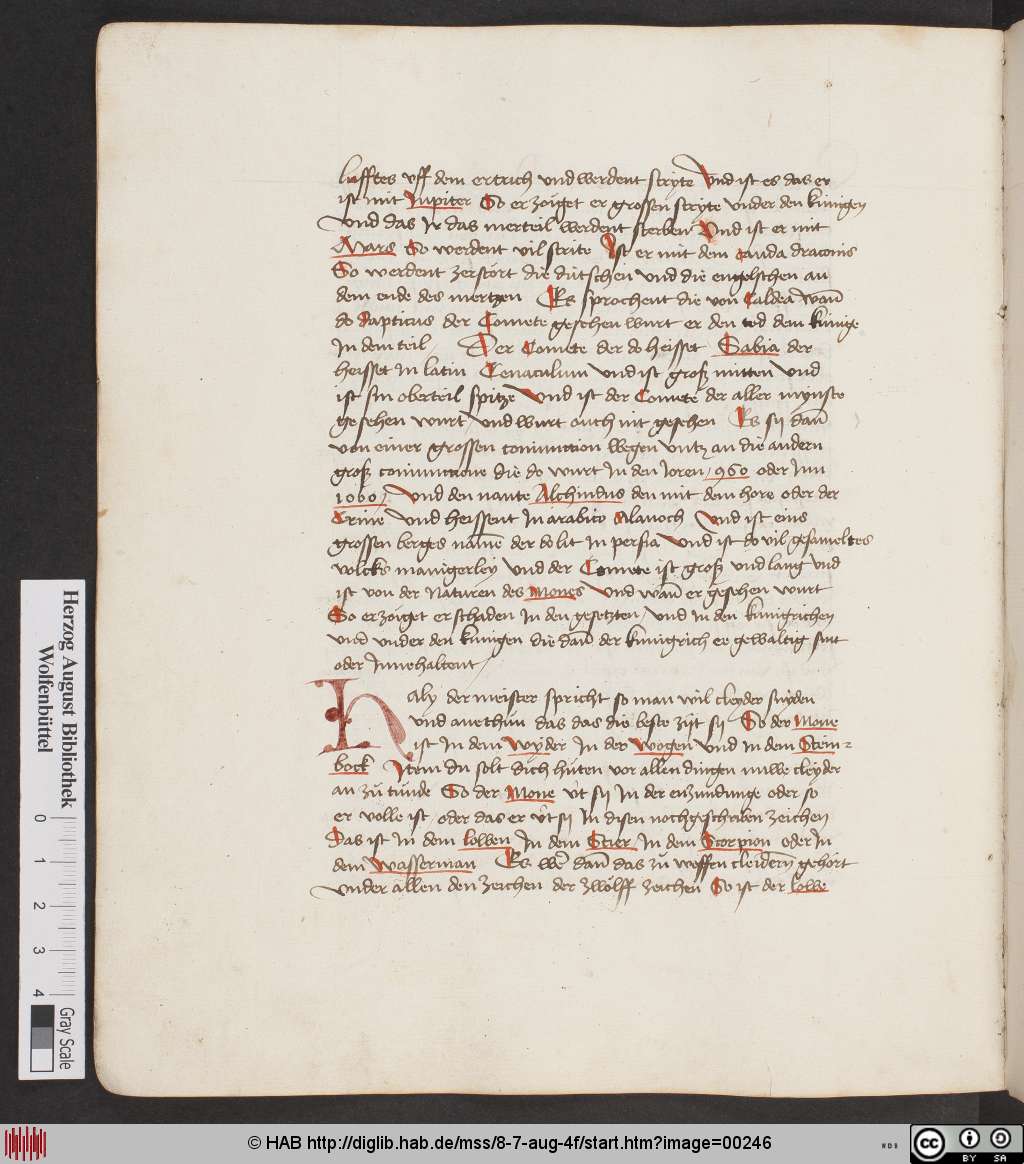 lufftes uff dem ertrich und werdent stryte Und ist es das er
ist mit Jupiter So erzöiget er grossen stryte under den künigen
und das Ir das merteil werdent sterben Und ist er mit
Mars So werdent vil strite Ist er mit dem cauda draconis
So werdent zerstört die dütschen und die engelschen an
dem ende des mertzen Es sprochent die von Caldea wan̄
do Japticus der Comete gesehen wurt er den tod dem künige
In dem teil Der Comete der do heisset Sabia der
heisset In latin Cenaculum und ist groß mitten und
ist sin oberteil spitze Und ist der Comete der aller mynste
gesehen wurt / und wurt ouch nit gesehen Es sy dan̄
von einer grossen coniunction wegen untz an die andern
groß coniunctione die do wurt In den Joren / 960 oder Inn
1060 / Und den nante Alchindus den mit dem hore oder der
Crine Und heissent In arabico Alanoch Und ist eins
grossen berges nam̄e der do lit In persia Und ist do vil gesameltes
volcks manigerley Und der Comete ist groß und lang und
ist von der Naturen des Mones Und wan̄ er gesehen wurt
So erzöiget er schaden In den gesetzten / und In den künigrichen
und under den künigen die dan̄ der künigrich er gewaltig sint
oder Innehaltent /
Haly der meister spricht so man wil cleyder snyden
und ane thun das das die beste zyt sy So der Mone
ist In dem Wyder In der Wogen Und In dem Stein=
bock Item du solt dich hüten vor allen dingen nuwe cleyder
an zů tunde So der Mone v't sy In der enzundunge oder so
er volle ist oder das er v't sy In disen nochgeschriben zeichen
Das ist In dem lowen In dem Stier In dem Scorpion oder In
dem Wasserman Es wer̄ dan̄ das zů woffen cleidern gehört
under allen den zeichen der zwölff zeichen So ist der lowe
Herzog August Bibliothek
Wolfenbüttel
0 1 2 3 4
Gray Scale
© HAB http://diglib.hab.de/mss/8-7-aug-4f/start.htm?image=00246
WDB
cc BY SA